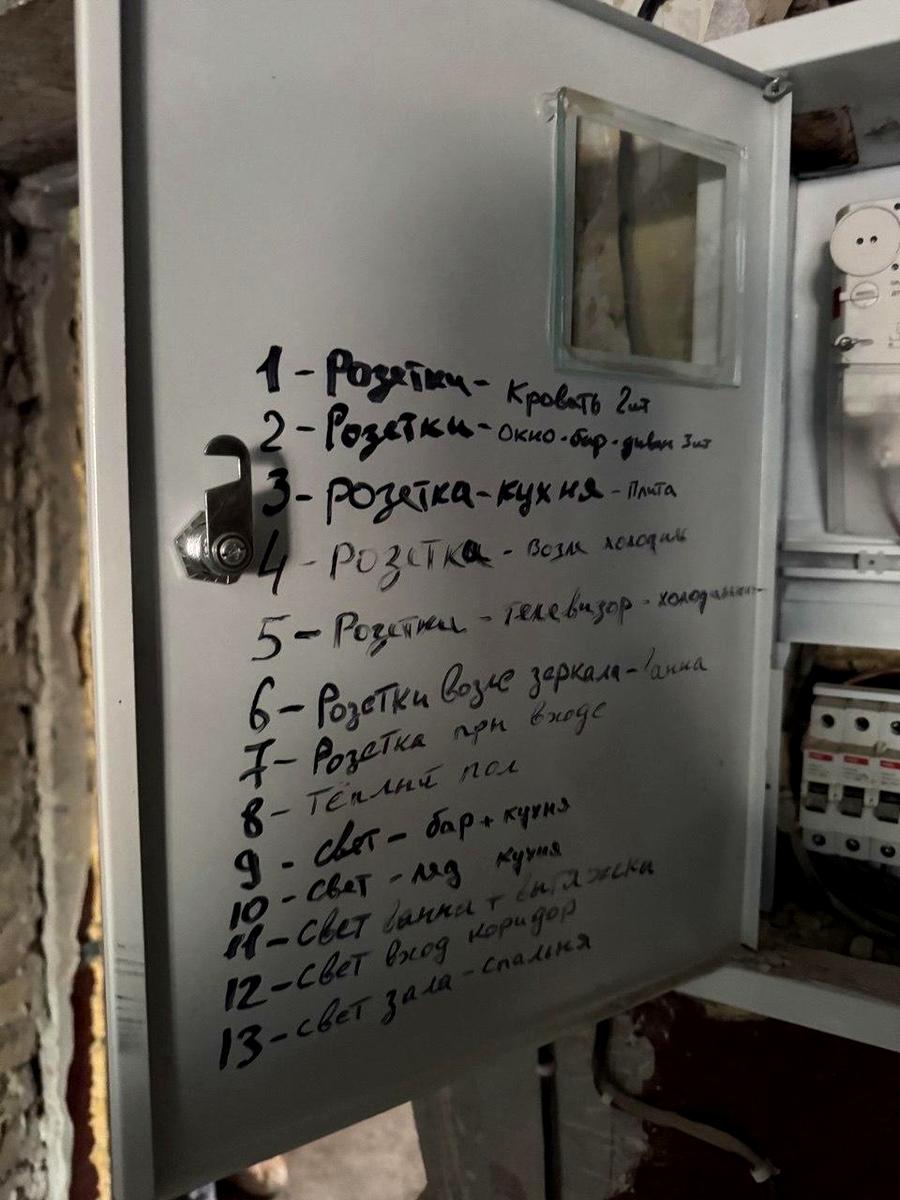 1 - Розетки - Кровать 2шт
2 - Розетки - окно - бар - диван 3шт
3 - Розетка - кухня - Плита
4 - Розетка - возле холодиль
5 - Розетки - телевизор - холодильник
6 - Розетки возле зеркала - Ванна
7 - Розетка при входе
8 - Тёплый пол
9 - Свет - бар + кухня
10 - Свет - лед кухня
11 - Свет ванна + вытяжка
12 - Свет вход коридор
13 - Свет зала - спальня